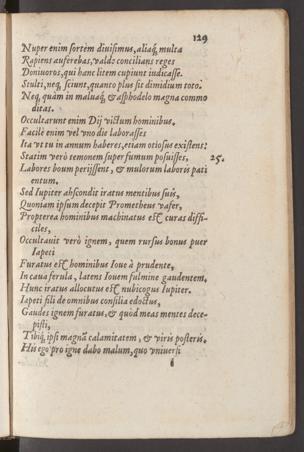 129
Nuper enim sortem diuisimus, aliaq́; multa
Rapiens auferebas, valdè concilians reges
Doniuoros, qui hanc litem cupiunt iudicasse.
Stulti, neq; sciunt, quanto plus sit dimidium toto:
Neq; quàm in maluaq́; & asphodelo magna commo
ditas.
Occultarunt enim Dij victum hominibus.
Facilè enim vel vno die laborasses
Ita vt tu in annum haberes, etiam otiosus existens:
Statim verò temonem super fumum posuisses, 25.
Labores boum perijssent, & mulorum laboris pati
entum.
Sed Iupiter abscondit iratus mentibus suis,
Quoniam ipsum decepit Prometheus vafer,
Propterea hominibus machinatus est curas diffi-
ciles,
Occultauit verò ignem, quem rursus bonus puer
Iapeti
Furatus est hominibus Ioue à prudente,
In caua ferula, latens Iouem fulmine gaudentem.
Hunc iratus allocutus est nubicogus Iupiter.
Iapeti fili de omnibus consilia edoctus,
Gaudes ignem furatus, & quòd meas mentes dece-
pisti,
Tibiq́; ipsi magnã calamitatem, & viris posteris.
His ego pro igne dabo malum, quo vniuersi